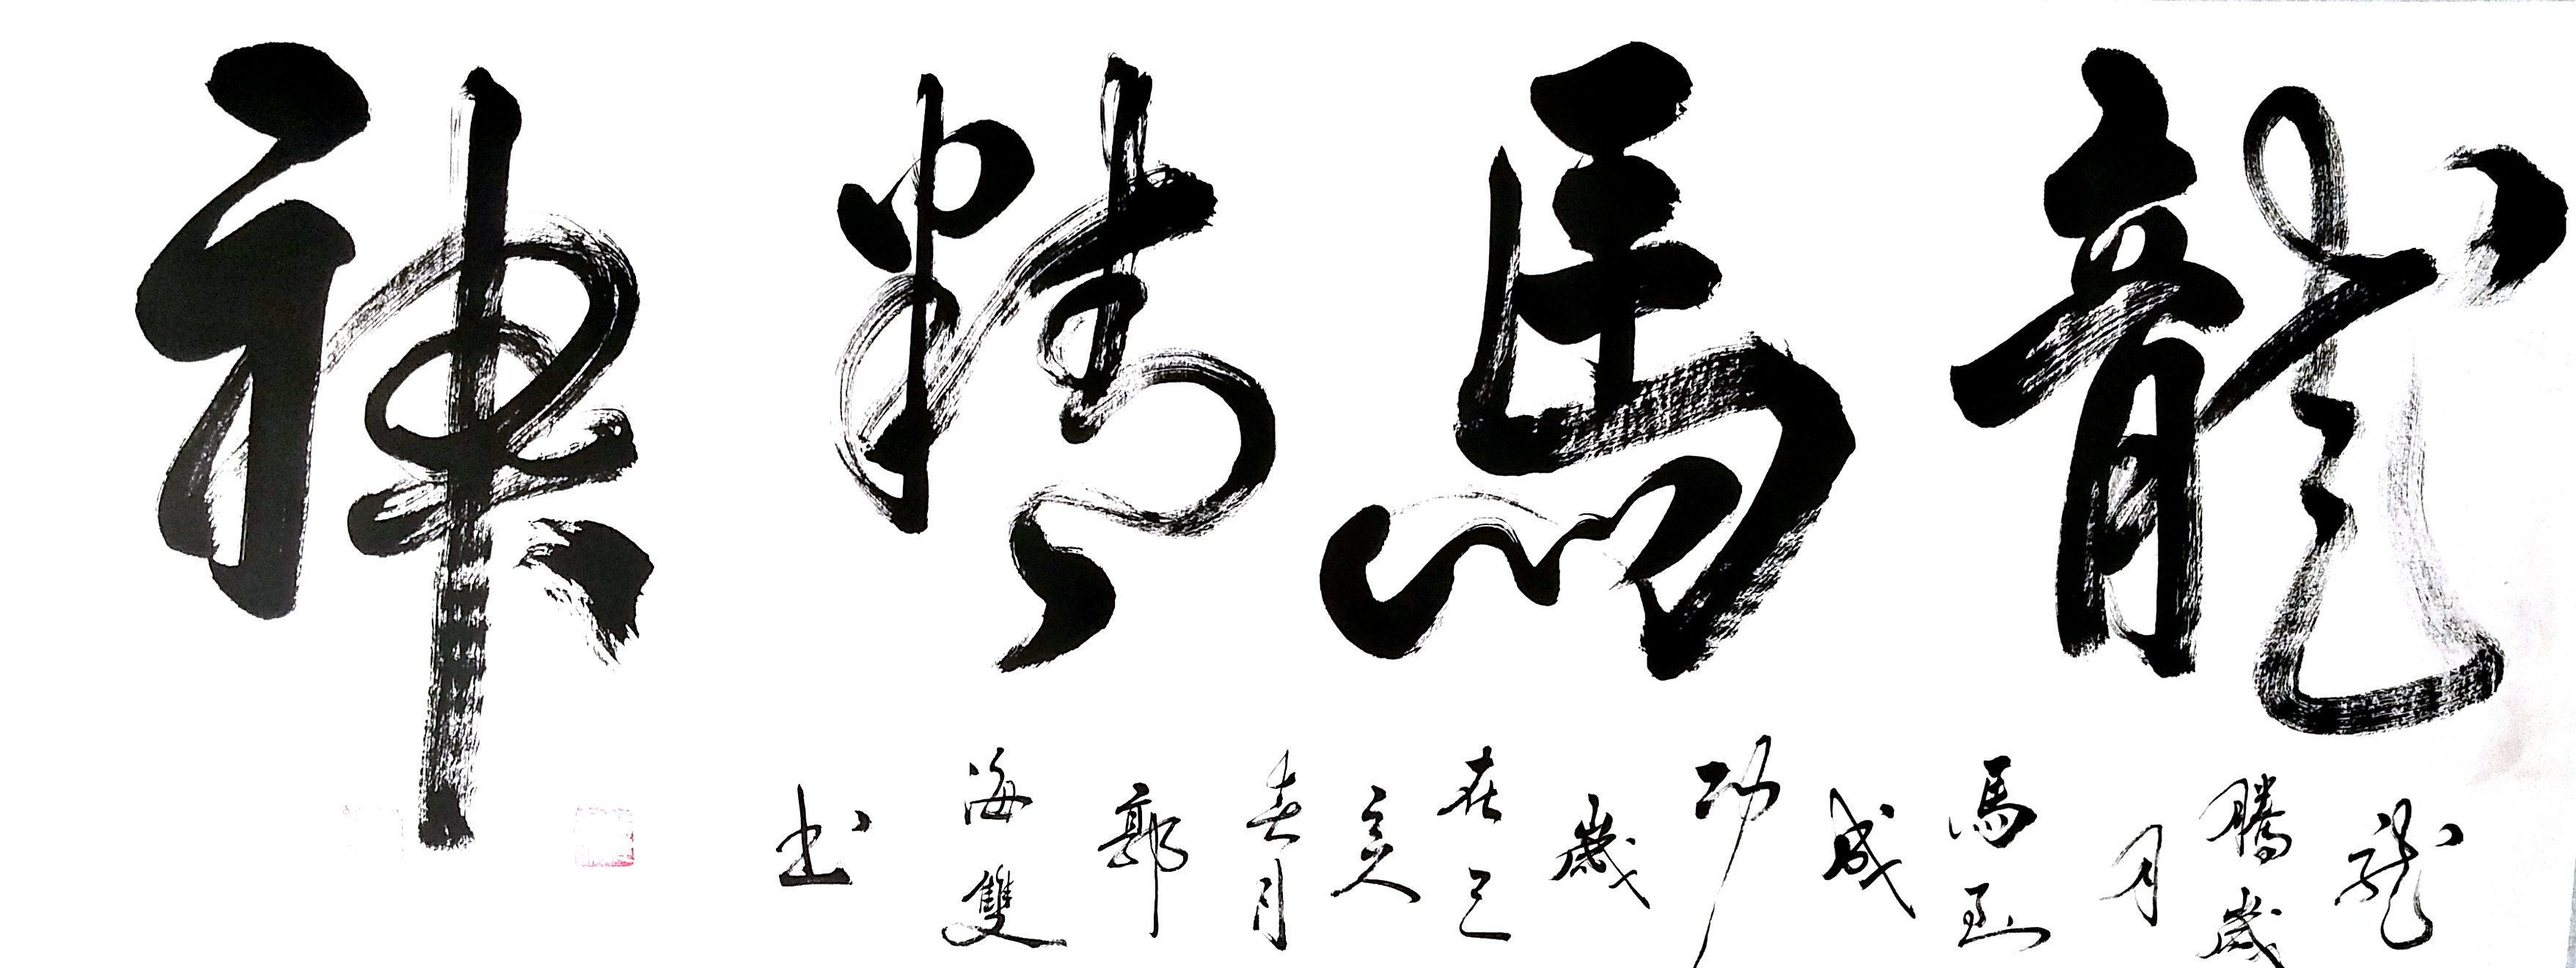 龍馬精神
龍騰歲月馬到成功歲在己亥春月郭海雙书